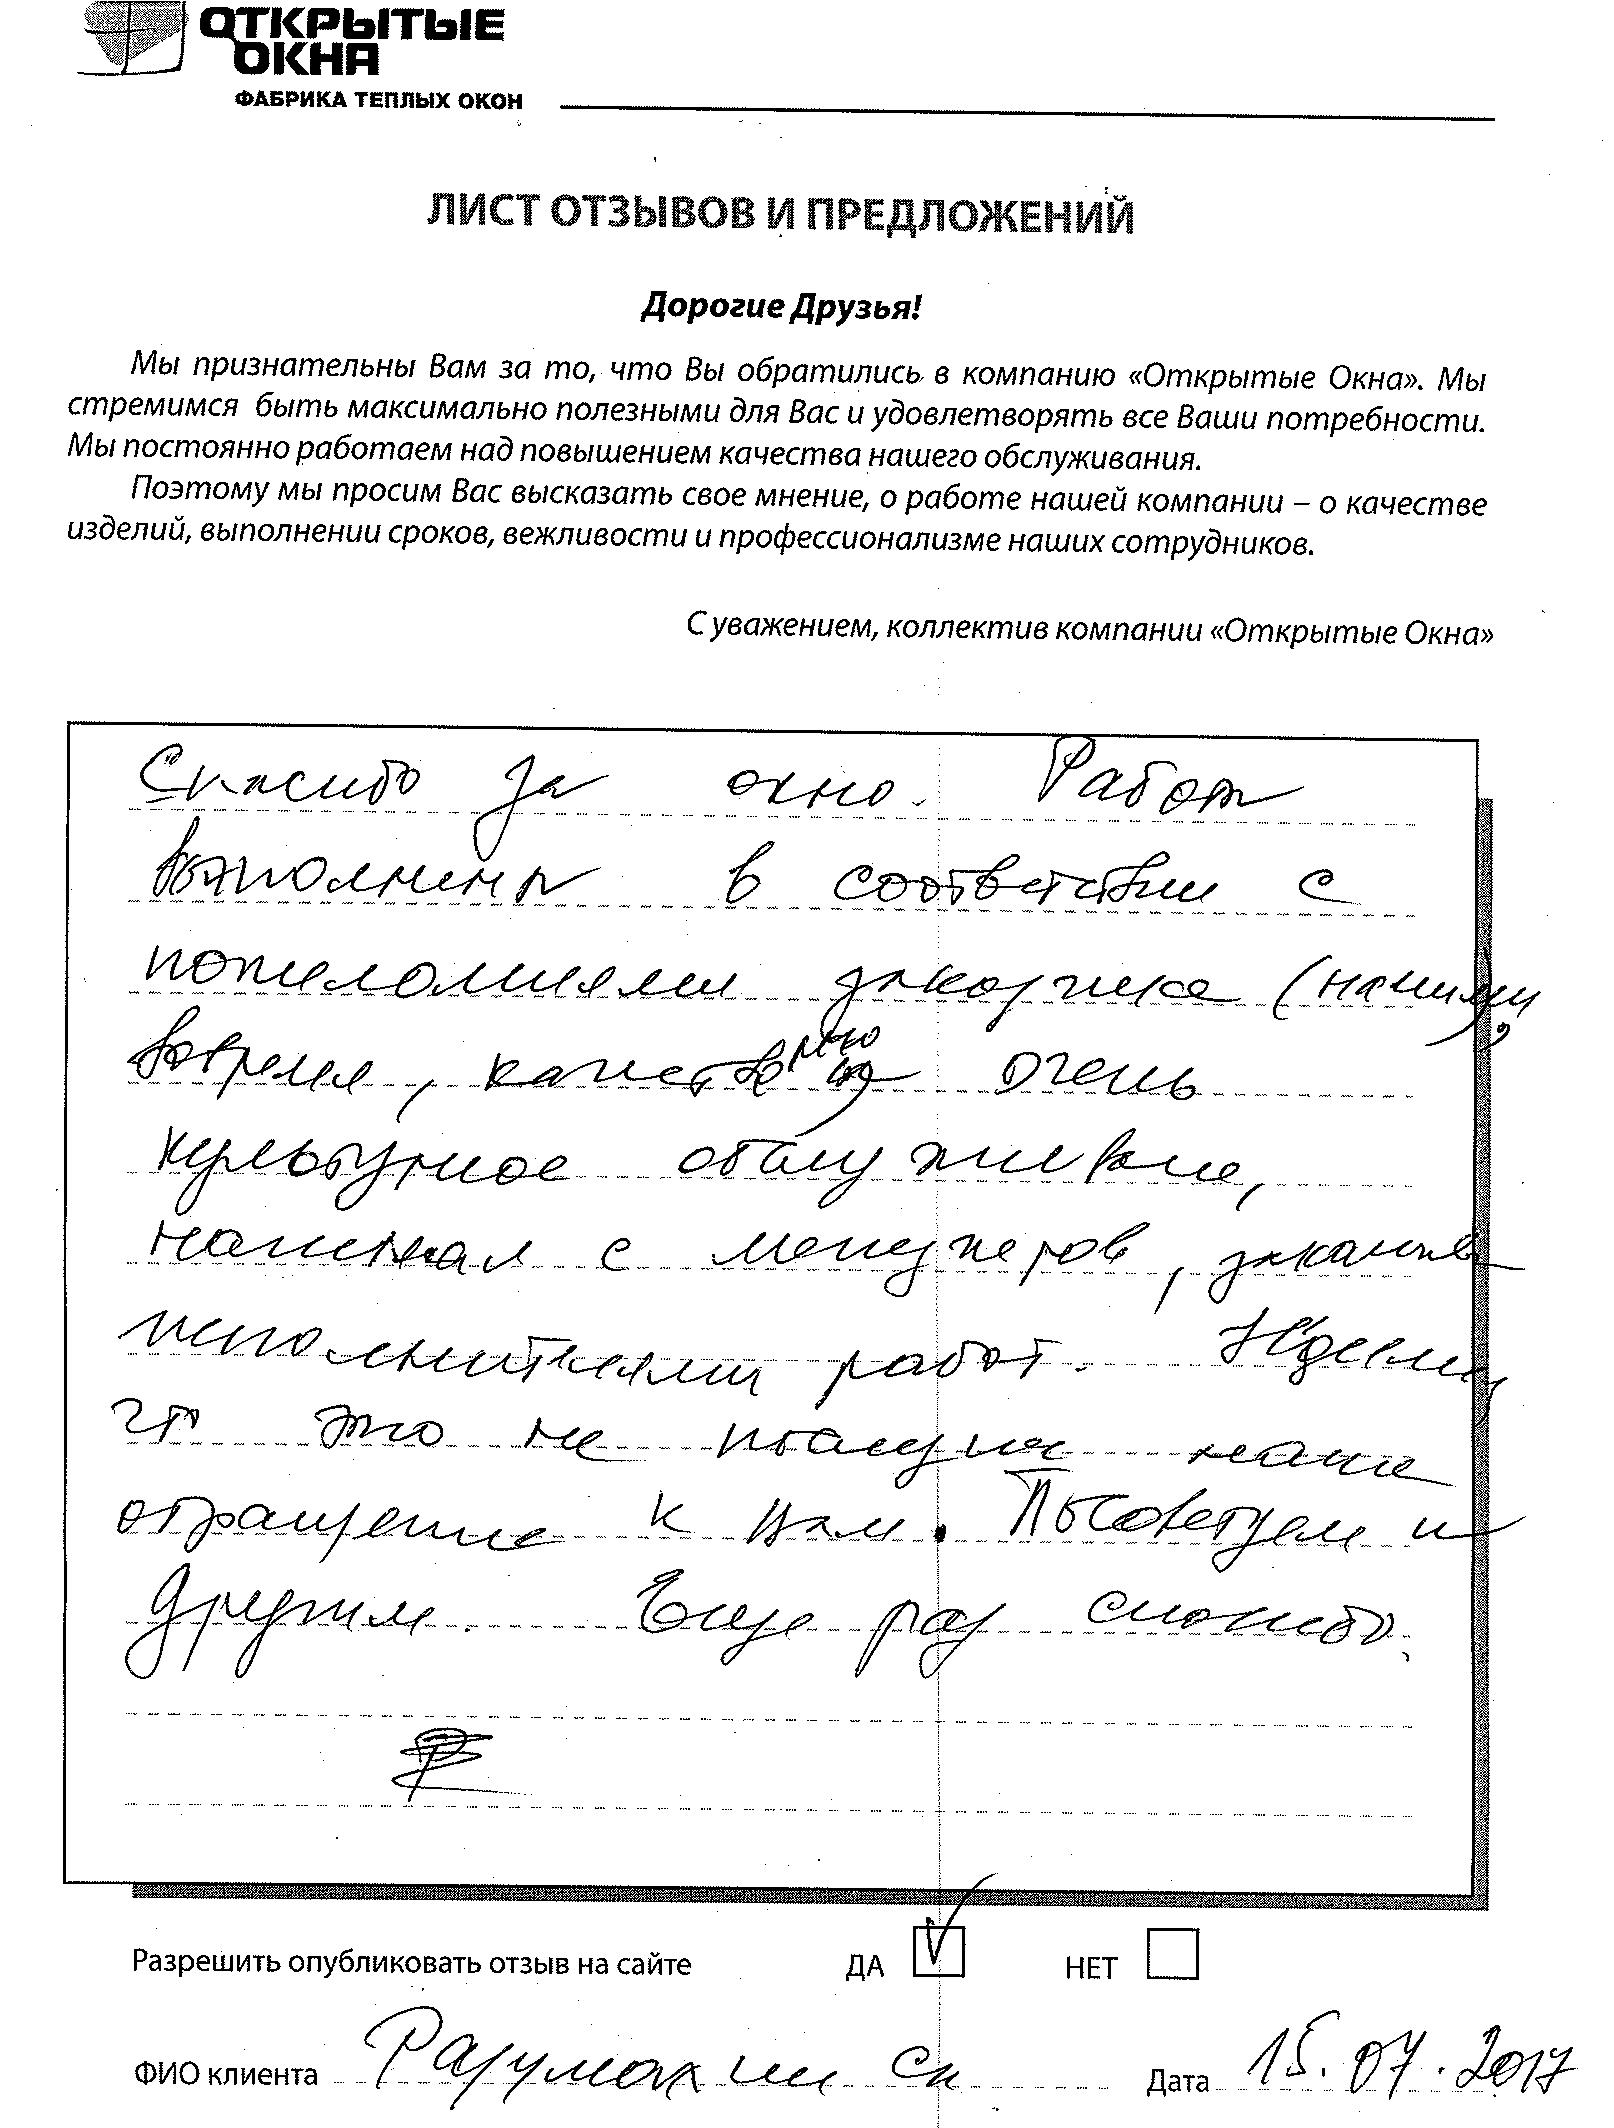 ОТКРЫТЫЕ
ОКНА
ФАБРИКА ТЕПЛЫХ ОКОН
ЛИСТ ОТЗЫВОВ И ПРЕДЛОЖЕНИЙ
Дорогие Друзья!
Мы признательны Вам за то, что Вы обратились в компанию «Открытые Окна». Мы
стремимся быть максимально полезными для Вас и удовлетворять все Ваши потребности.
Мы постоянно работаем над повышением качества нашего обслуживания.
Поэтому мы просим Вас высказать свое мнение, о работе нашей компании – о качестве
изделий, выполнении сроков, вежливости и профессионализме наших сотрудников.
С уважением, коллектив компании «Открытые Окна»
Спасибо за окно. Работы
выполнены в соответствии с
пожеланиями заказчика (нашими),
вовремя, качественно, очень
культурное обслуживание,
начиная с менеджеров, заканчивая
исполнителями работ. Надеемся
что это не последнее наше
обращение к Вам. Посоветуем и
друзьям. Еще раз спасибо.
Разрешить опубликовать отзыв на сайте ДА НЕТ
ФИО клиента Разумахин Дата 15.07.2017